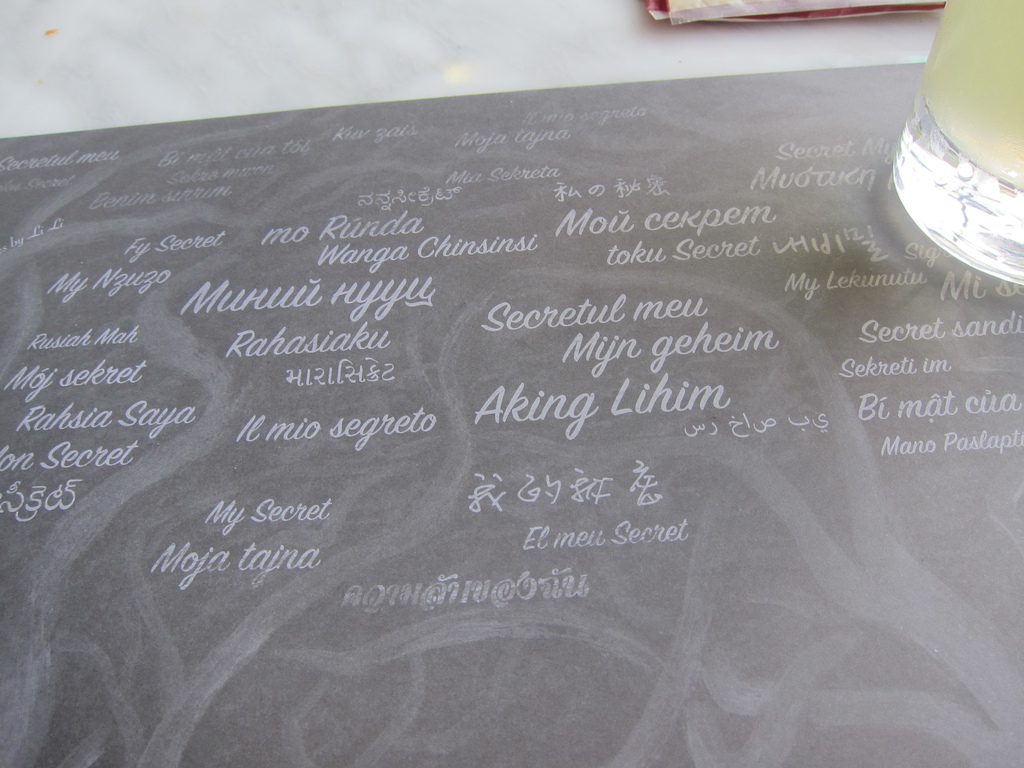 Il mio segreto
Kuv zais
Moja tajna
Secretul meu
Bí mật của tôi
Secret My
Mia Sekreta
toku Secret
Benim sırrım
ನನ್ನಸೀಕ್ರೆಟ್
私の秘密
Μυστική
by Li Li
Fy Secret
mo Rúnda
Мой секрет
Wanga Chinsinsi
toku Secret
내비밀
My Nzuzo
My Lekunutu
Mi
Миний нууц
Secretul meu
Secret sandi
Rusiah Mah
Rahasiaku
Mijn geheim
Sekreti im
Mój sekret
મારાસિક્રેટ
Aking Lihim
Bí mật của
Rahsia Saya
Il mio segreto
سر خاص بي
Mano Paslapti
on Secret
我的秘密
My Secret
El meu Secret
Moja tajna
ความลับของฉัน